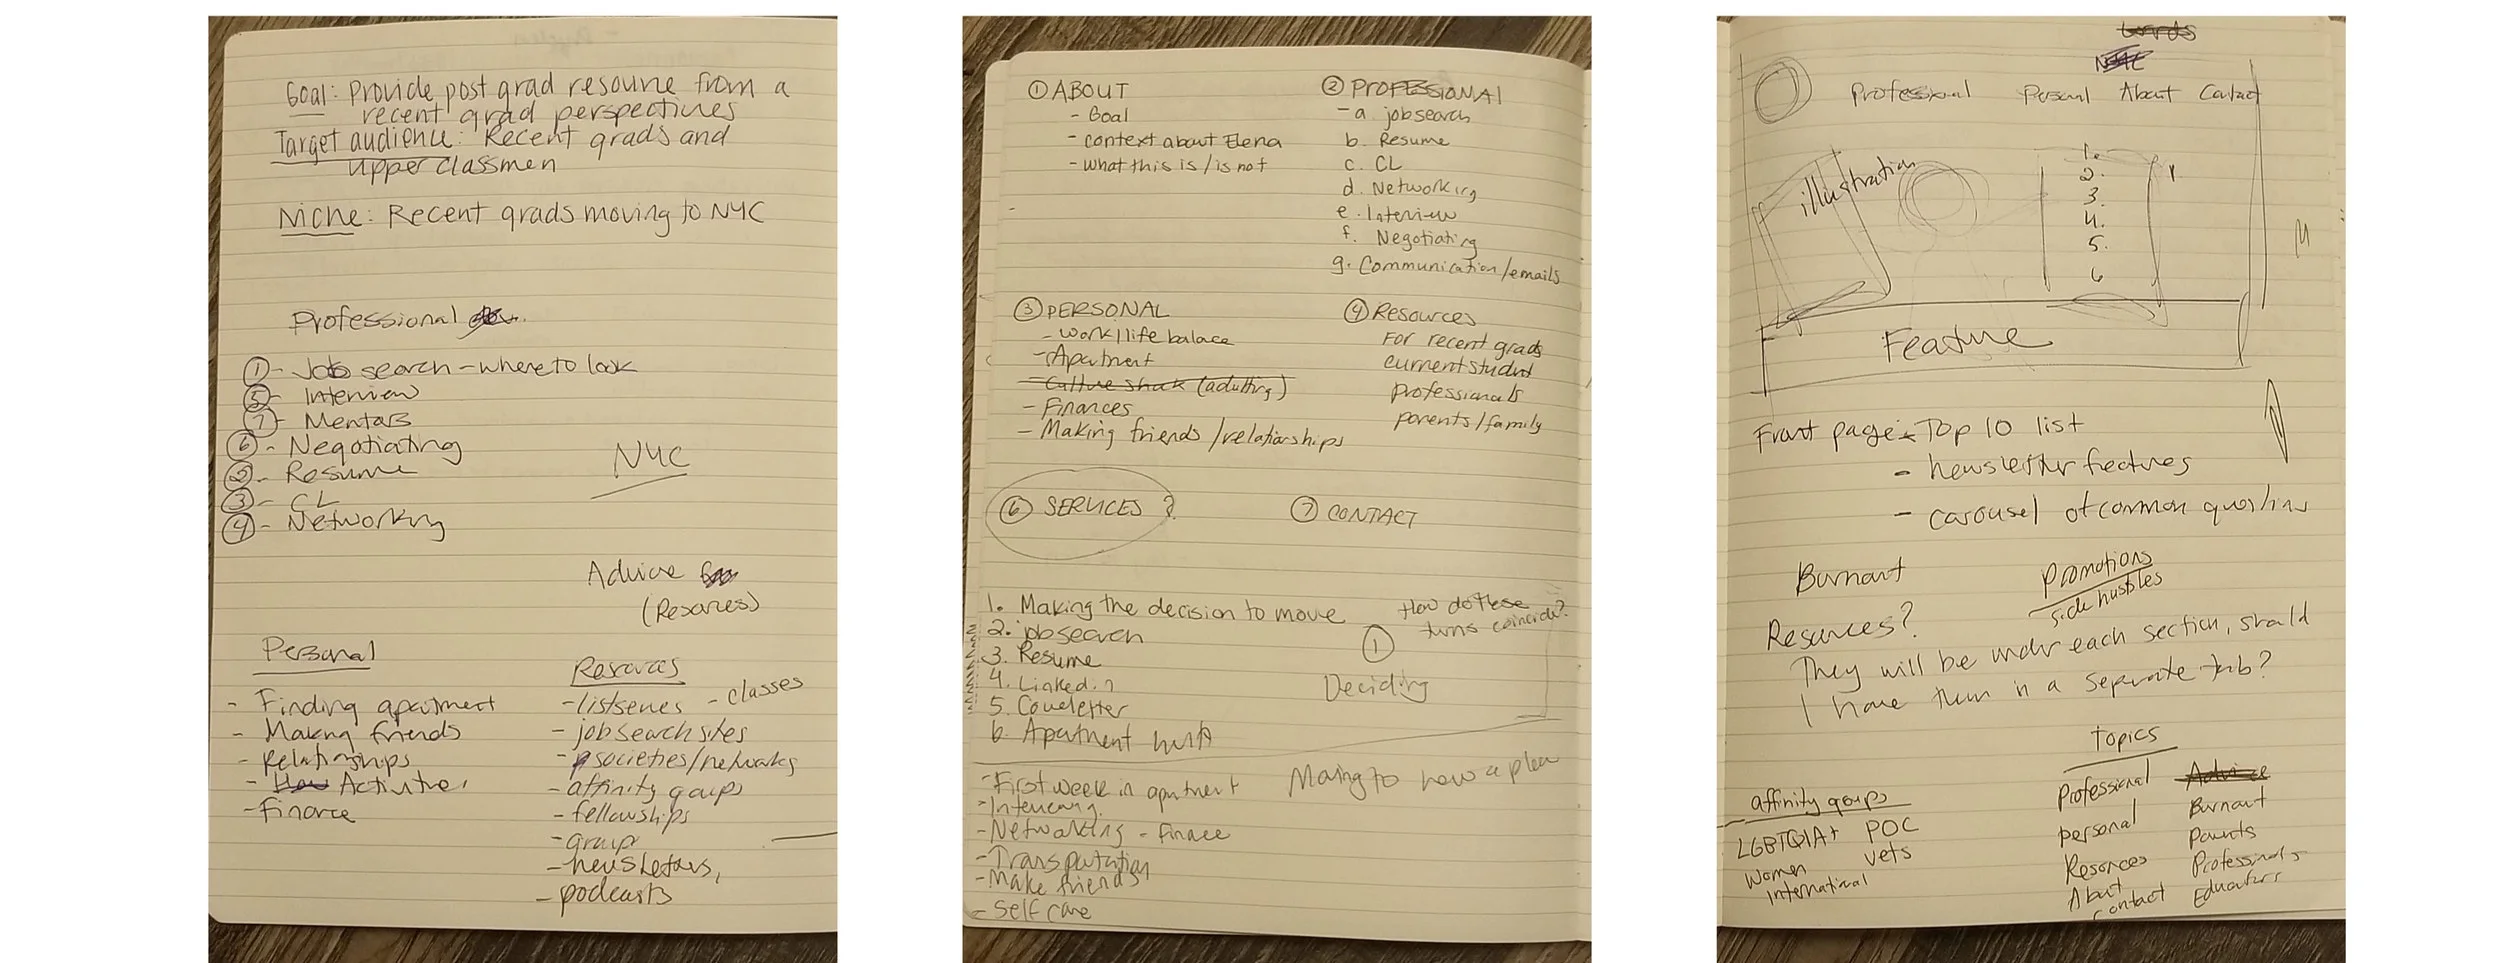 Goal: Provide post grad resourse from a
recent grad perspectives
Target audience: Recent grads and
upper classmen
Niche: Recent grads moving to NYC
Professional
① - Job search - where to look
⑤ - Interview
⑦ - Mentors
⑥ - Negotiating
② - Resume
③ - CL
④ - Networking
NYC
Advice
(Resources)
Personal
- Finding apartment
- Making friends
- Relationships
- How Activities
- Finance
Resources
- listserves - classes
- job search sites
- societies/networks
- affinity groups
- fellowships
- group
- newsletters,
- podcasts
① ABOUT
- Goal
- context about Elena
- what this is / is not
② PROFESSIONAL
- a. job search
b. Resume
c. CL
d. Networking
e. Interview
f. Negotiating
g. Communication/emails
③ PERSONAL
- work/life balace
- Apartment
- Culture shock (adulting)
- Finances
- Making friends /relationships
④ Resources
For recent grads
current studnt
professionals
parents/family
⑥ SERVICES ?
⑦ CONTACT
1. Making the decision to move
2. job search
3. Resume
4. Linkedin
5. Coverletter
6. Apartment hunt
How do these
turns coincide?
①
Deciding
- First week in apartment
- Interviewing
- Networking - finace
- Transportation
- Make friends
- Self care
Moving to how a plan
Words
NYC
Professional Personal About Contact
illustration
1.
2.
3.
4.
5.
6
Feature
Front page: - Top 10 list
- newsletter features
- carousel of common questions
Burnout
promotions
side hustles
Resources?
They will be under each section, should
I have them in a separate tab?
Topics
Professional
personal
Resources
About
contact
Advice
Burnout
Parents
Professionals
Educators
affinity groups
LGBTQIA+ POC
Women Vets
International